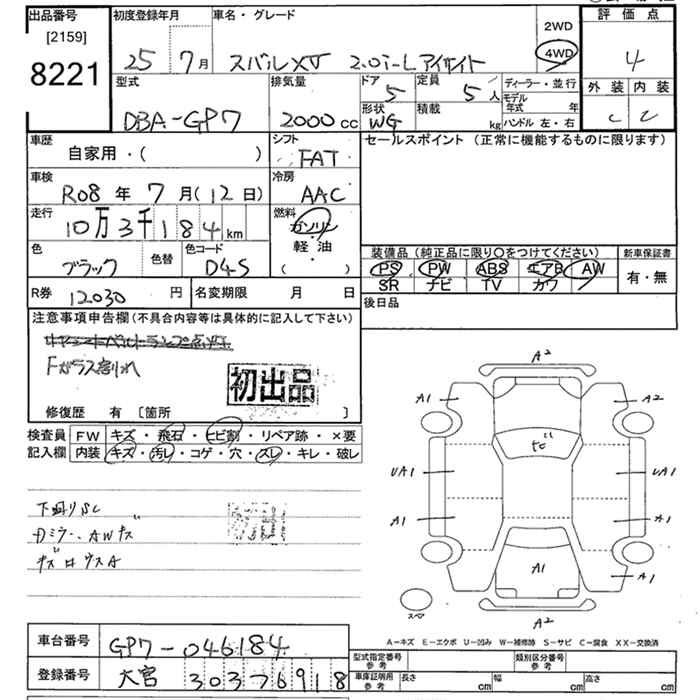 出品番号 初度登録年月 車名・グレード 2WD 評価点
[2159] 25 7月 スバルXV 2.0i-Lアイサイト 4WD 4
8221
型式 排気量 ドア 定員 ディーラー・並行 外装 内装
DBA-GP7 2000cc 5 5人 モデル年式 年 C C
形状 WG 積載 kg ハンドル 左・右
車歴 シフト セールスポイント(正常に機能するものに限ります)
自家用・( ) FAT
車検 冷房
R08年7月(12日) AAC
走行 燃料
10万3千184km ガソリン
軽・油
( )
色 色替 色コード 装備品(純正品に限り○をつけてください) 新車保証書
ブラック D4S PS PW ABS エアB AW 有・無
SR ナビ TV カワ
R券 12030円 名変期限 月 日 後日品
注意事項申告欄(不具合内容等は具体的に記入して下さい)
Fガラス割れ
初出品
修復歴 有 [箇所 ]
検査員 FW キズ・飛石・ヒビ割・リペア跡・×要
記入欄 内装 キズ・汚レ・コゲ・穴・スレ・キレ・破レ
下回りSC
Dミラー、AWキズ
初出
A2
A1 A2
UA1 UA1
A1 A1
A1 A1
A2
スペア
A-キズ E-エクボ U-凹み W-補修跡 S-サビ C-腐食 XX-交換済
車台番号 GP7-046184
登録番号 大宮 303 7 6918
型式指定番号 参考 類別区分番号 参考
車庫証明用 参考 長さ cm 幅 cm 高さ cm